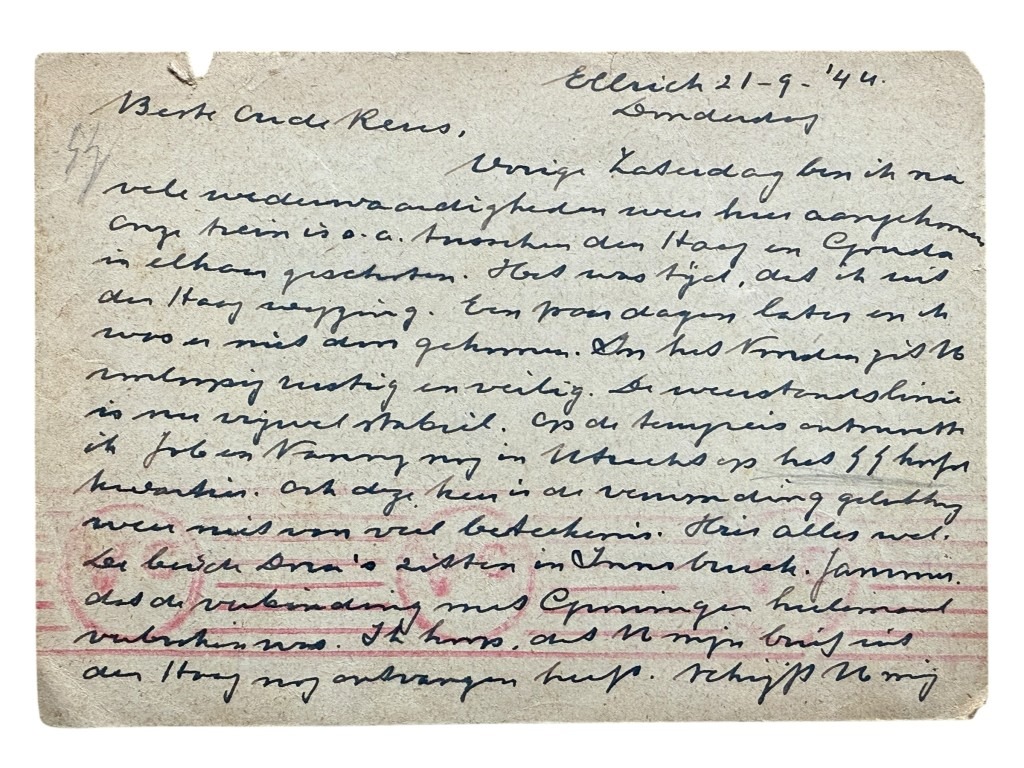 Ellrich 21-9-'44.
Donderdag
Beste Oude Reus,
Vorige Zaterdag ben ik na
vele wederwaardigheden weer hier aangekomen
onze trein is o.a. tusschen den Haag en Gouda
in elkaar geschoten. Het was tijd, dat ik uit
den Haag wegging. Een paar dagen later en ik
was er niet door gekomen. In het Noorden zit U
voorloopig rustig en veilig. De weerstandslinie
is nu vrijwel stabiel. Op de terugreis ontmoette
ik Job en Nanny nog in Utrecht op het SS hoofd
kwartier. Ook deze keer is de verwonding gelukkig
weer niet van veel beteekenis. Hier alles wel.
De beide Dora's zitten in Innsbruck. Jammer.
dat de verbinding met Groningen heelemaal
verbroken was. Ik hoop, dat U mijn brief uit
den Haag nog ontvangen heeft. Schrijft U mij